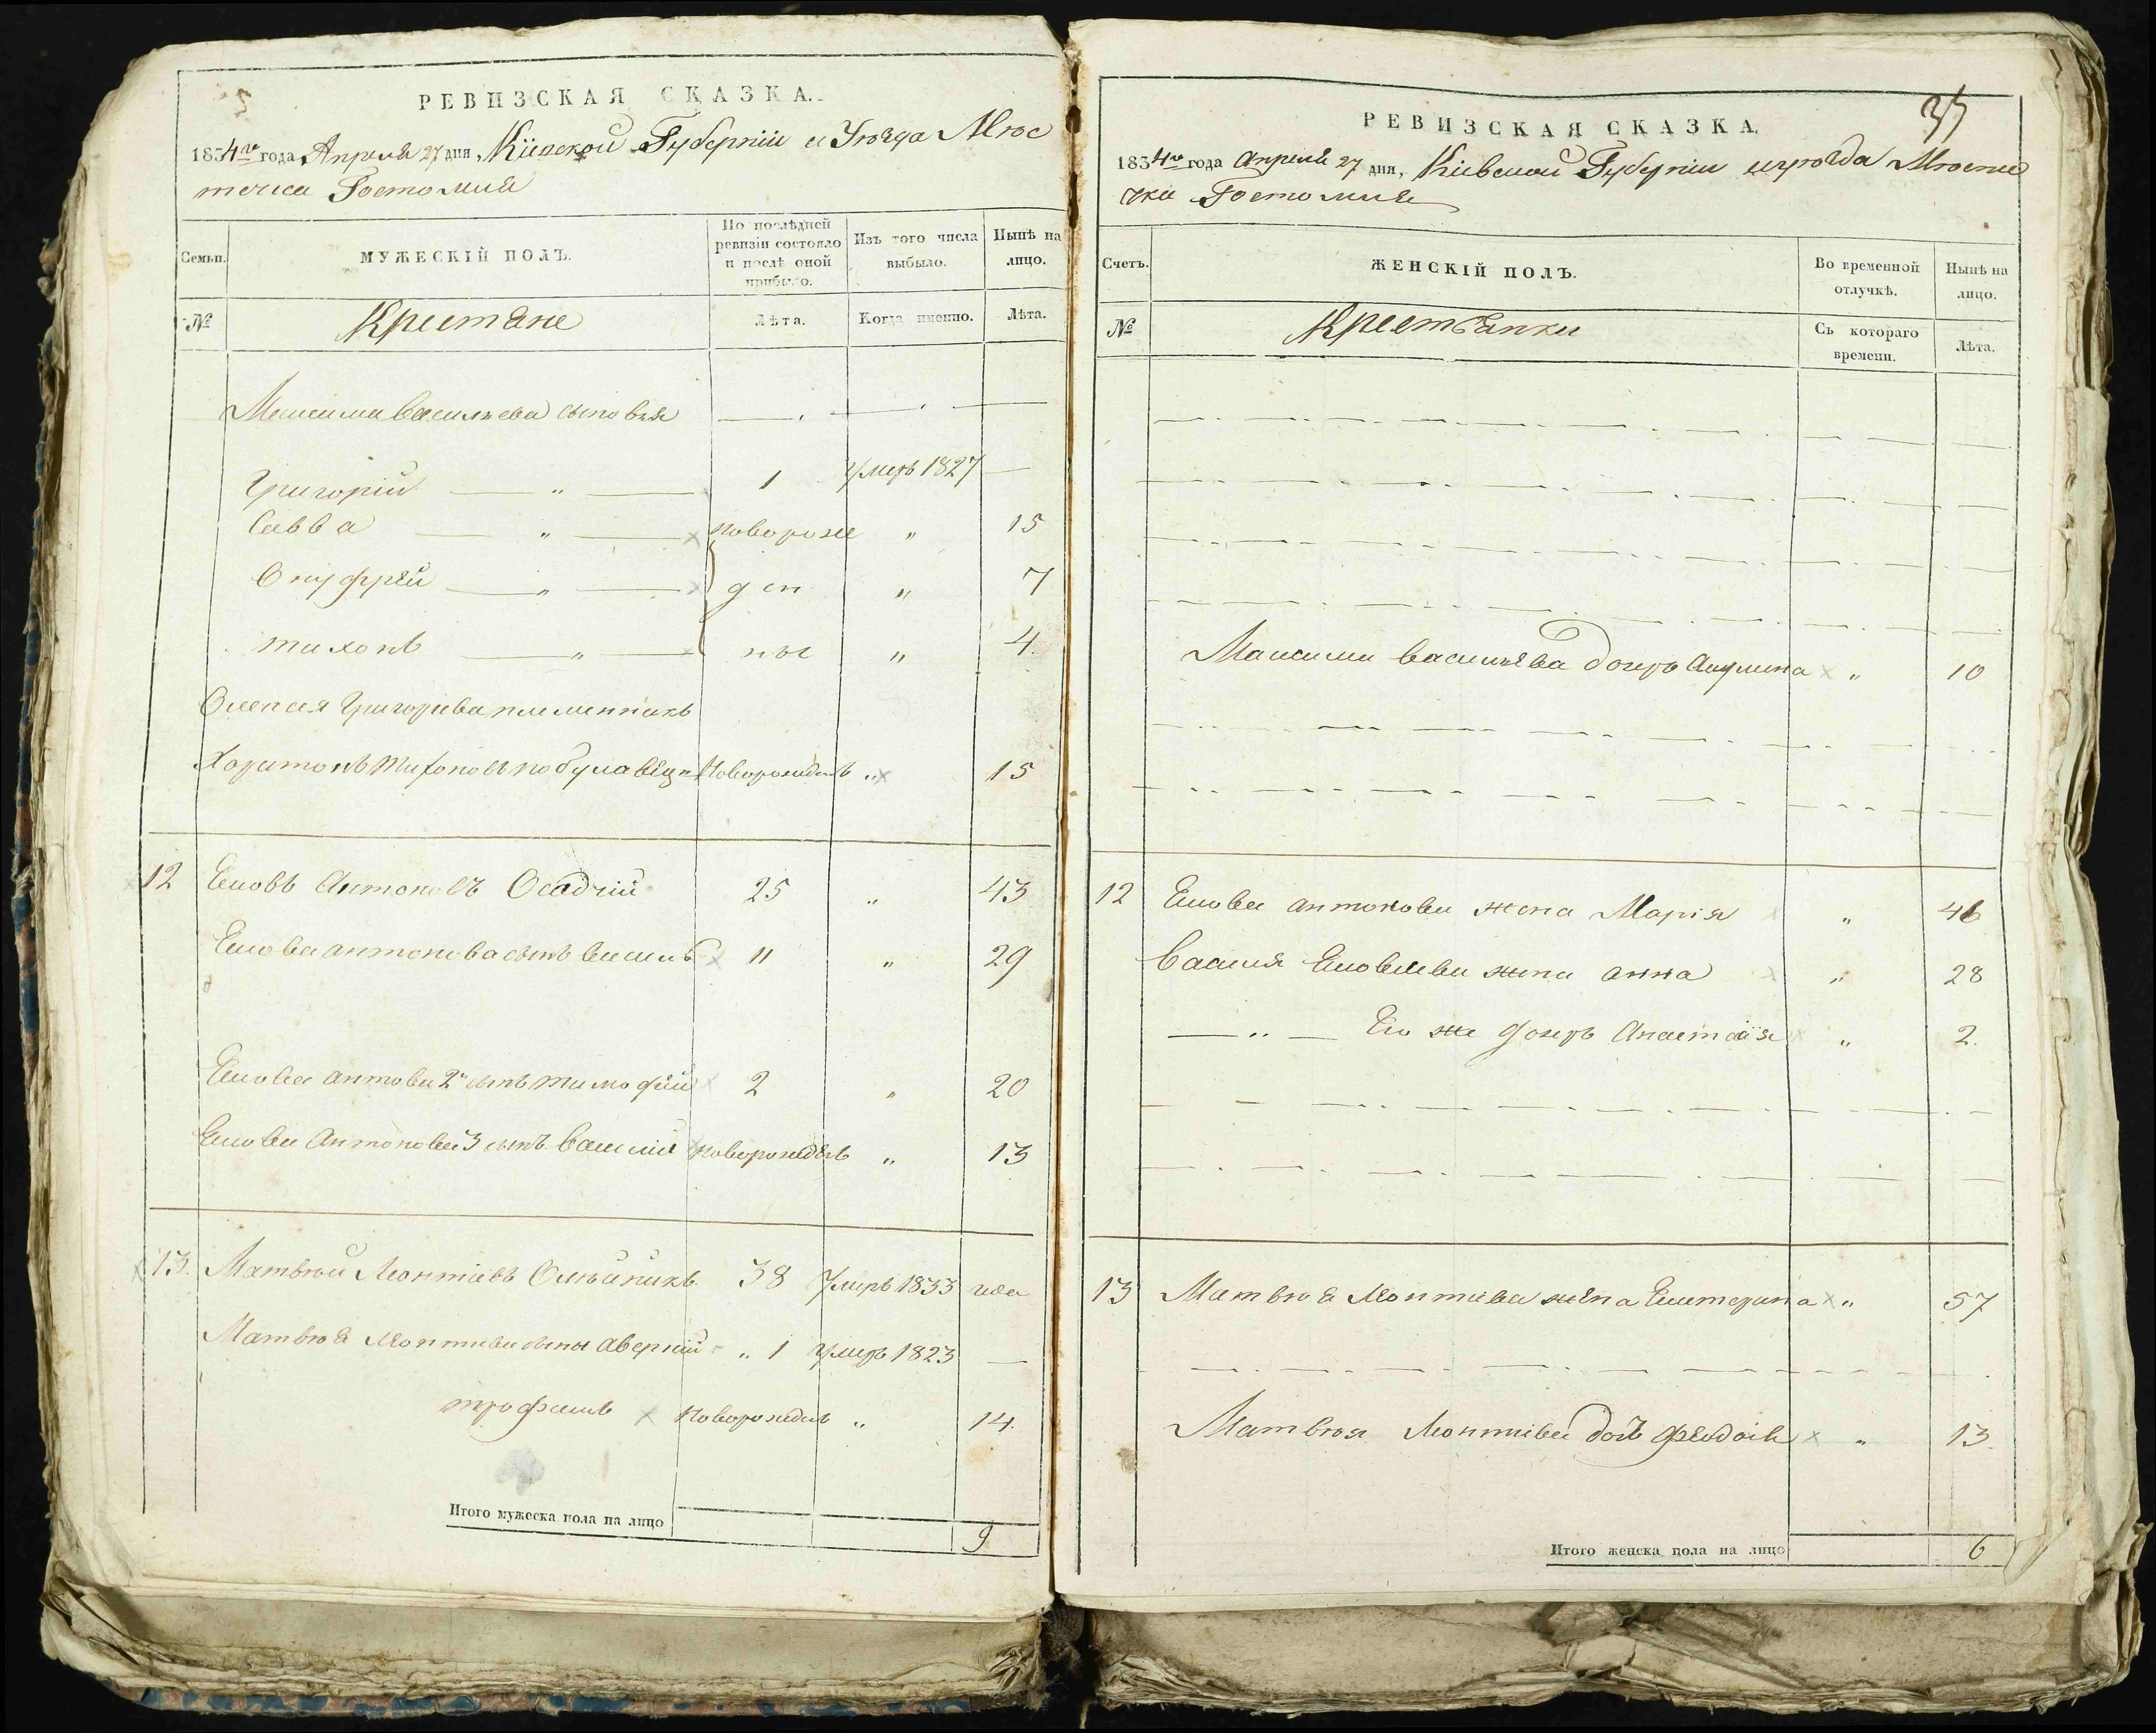 РЕВИЗСКАЯ СКАЗКА.
1834го года Апреля 27 дня, Кіевской Губерніи и Уѣзда Мѣс
течка Гостомля
Семьи.
МУЖЕСКІЙ ПОЛЪ.
По послѣдней ревизіи состояло и послѣ оной прибыло.
Изъ того числа выбыло.
Нынѣ на лицо.
№
Крестяне
Лѣта.
Когда именно.
Лѣта.
Максима Васильева сыновья
Григорій " 1 умеръ 1827
Савва " новорож " 15
Онуфрѣй " ден " 7
тихонъ " ны " 4
Алексея Григорева племенникъ
Харитонъ Тихоновъ новорожденъ " 15
12 Еаовъ Антоновъ Осадчій 25 " 43
Еаова антонова сынъ василь 11 " 29
Еаова антонова 2й сынъ тимофѣй 2 " 20
Еаова Антонова 3 сынъ Василій новорожденъ " 13
13. Матвѣй Леонтіевъ Олѣйникъ 38 умеръ 1833 года
Матвѣя Леонтиева сыны аверкій " 1 умеръ 1823
трофимъ новорожденъ " 14.
Итого мужеска пола на лицо 9
35
РЕВИЗСКАЯ СКАЗКА.
1834го года апреля 27 дня, Кіевской Губерніи иуѣзда Мѣсте
чка Гостомля
Счетъ.
ЖЕНСКІЙ ПОЛЪ.
Во временной отлучкѣ.
Нынѣ на лицо.
№
Крестьянки
Съ котораго времени.
Лѣта.
Максима васильева дочерь Акулина " 10
12 Еаова антонова жена Марія " 46
Василя Еаовлева жена анна " 28
" Его же дочерь Анастасія " 2.
13 Матвѣя Леонтиева жена Екатерина " 57
Матвѣя Леонтиева дочъ Феодосія " 13.
Итого женска пола на лицо 6